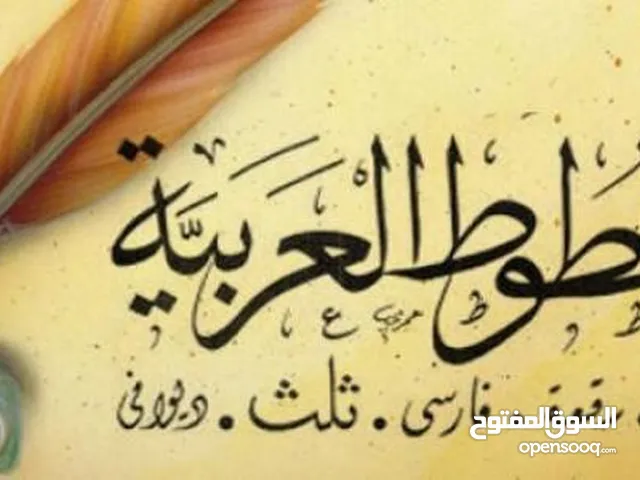 طوط العربية
رقعة . فارسي . ثلث . ديواني
السوق المفتوح
opensooq.com